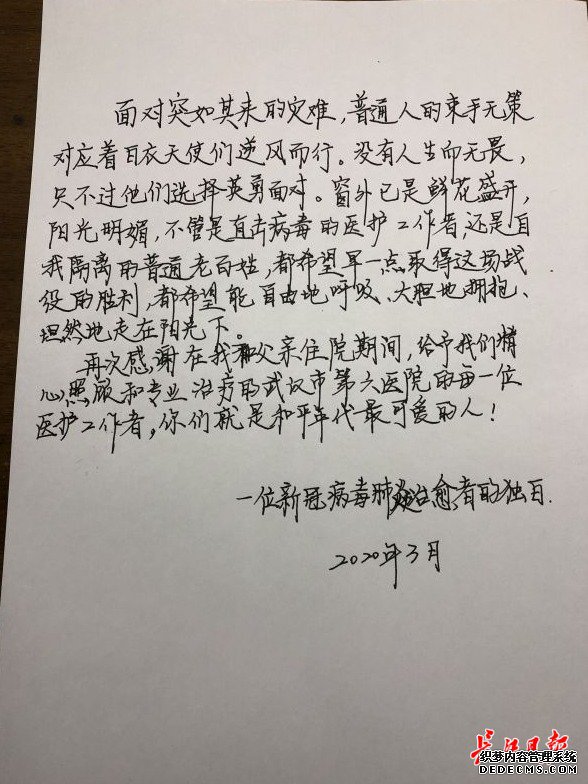 面对突如其来的灾难，普通人的束手无策
对应着白衣天使们逆风而行。没有人生而无畏，
只不过他们选择英勇面对。窗外已是鲜花盛开，
阳光明媚，不管是直击病毒的医护工作者，还是自
我隔离的普通老百姓，都希望早一点取得这场战
役的胜利，都希望能自由地呼吸、大胆地拥抱、
坦然地走在阳光下。
再次感谢在我和父亲住院期间，给予我们精
心照顾和专业治疗的武汉市第六医院的每一位
医护工作者，你们就是和平年代最可爱的人！
一位新冠病毒肺炎治愈者的独白.
2020年3月
长江日报
织梦内容管理系统
DEDECMS.COM